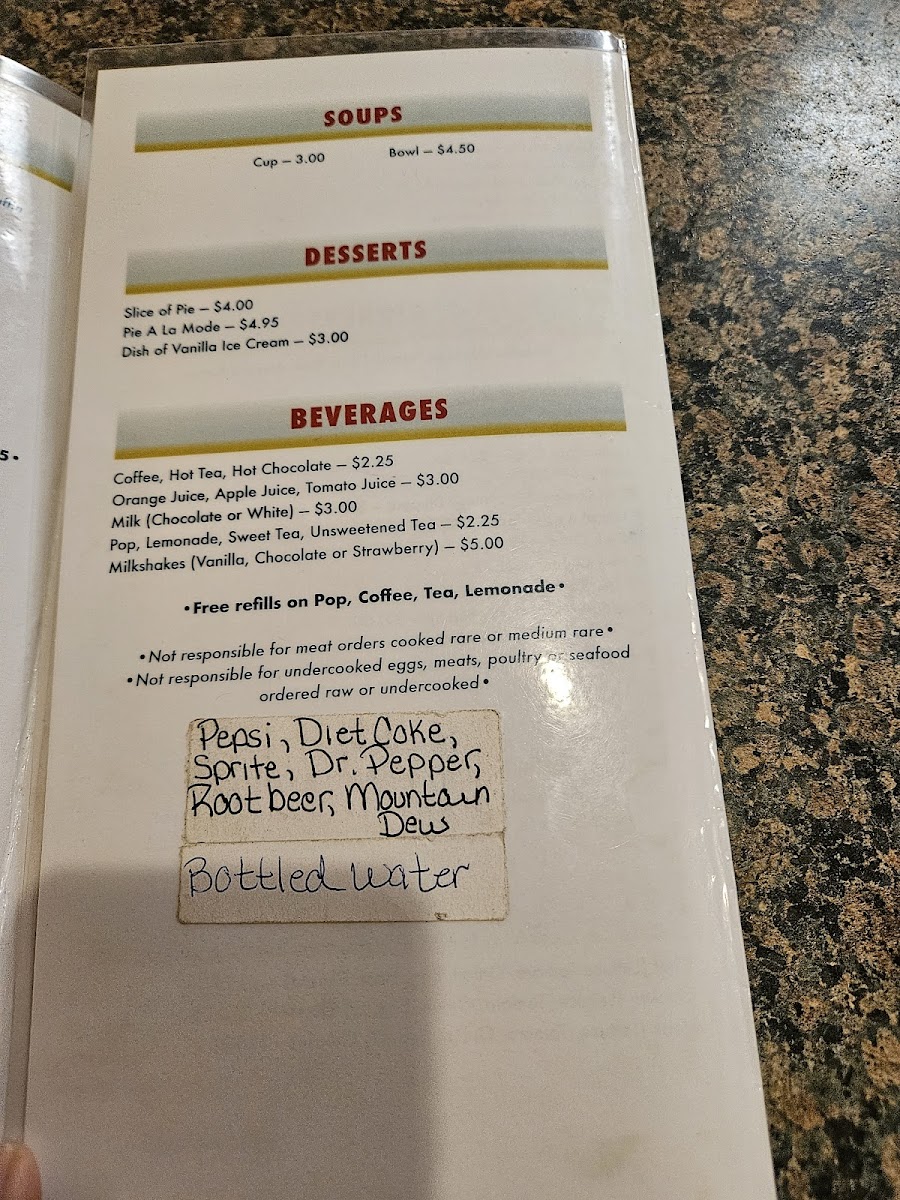 SOUPS
Cup – 3.00 Bowl – $4.50
DESSERTS
Slice of Pie – $4.00
Pie A La Mode – $4.95
Dish of Vanilla Ice Cream – $3.00
BEVERAGES
Coffee, Hot Tea, Hot Chocolate – $2.25
Orange Juice, Apple Juice, Tomato Juice – $3.00
Milk (Chocolate or White) – $3.00
Pop, Lemonade, Sweet Tea, Unsweetened Tea – $2.25
Milkshakes (Vanilla, Chocolate or Strawberry) – $5.00
•Free refills on Pop, Coffee, Tea, Lemonade•
•Not responsible for meat orders cooked rare or medium rare•
•Not responsible for undercooked eggs, meats, poultry or seafood
ordered raw or undercooked•
Pepsi, Diet Coke,
Sprite, Dr. Pepper,
Root beer, Mountain
Dew
Bottled water